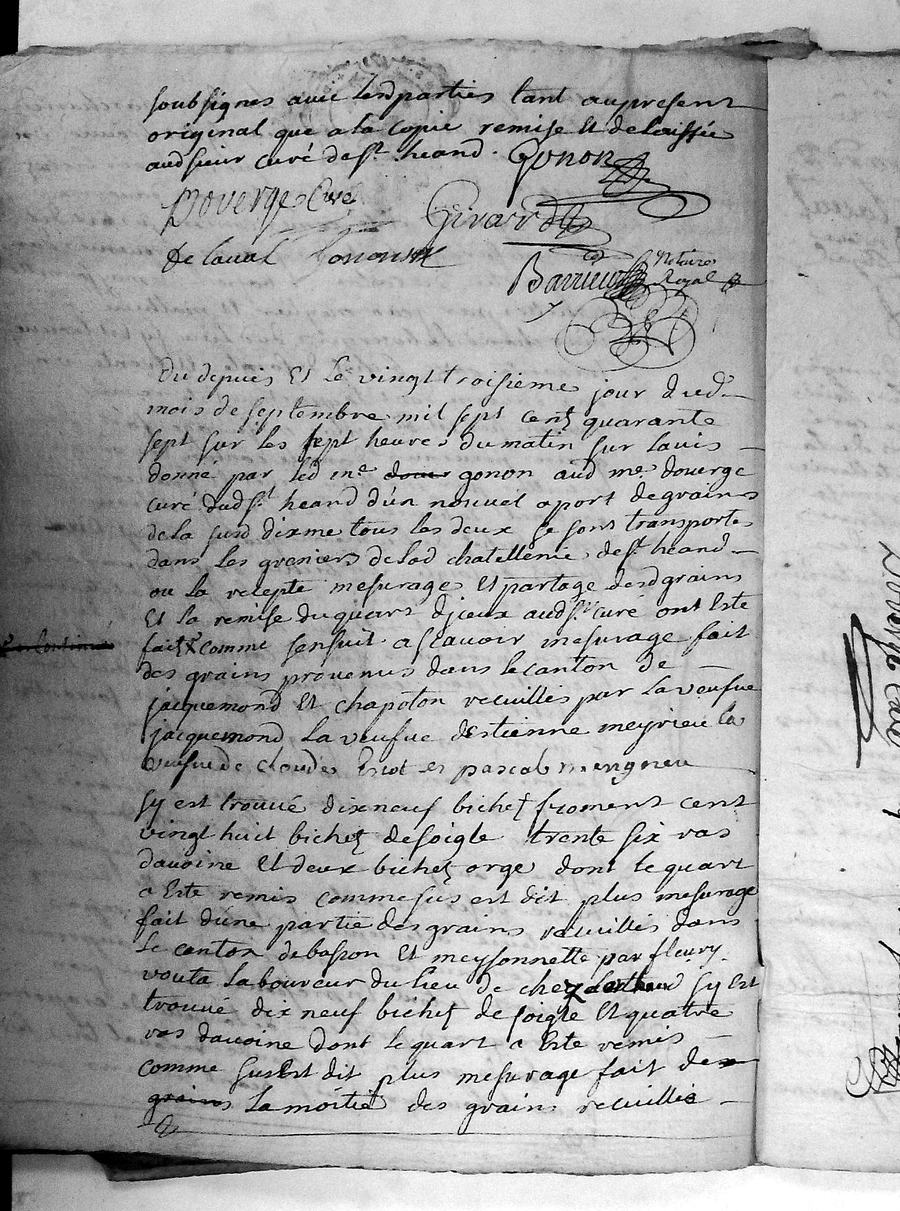 soubsignes avec lesd parties tant au present
original que a la copie remise et delaissée
aud sieur curé de st heand. Gonon
Doverge Curé Girard
de laval Gonon
Barrieu Notaire
Royal
Du depuis Et Le vingt troisieme jour dud
mois de septembre mil sept cent quarante
sept sur les sept heures du matin sur lavis
donné par led me gonon aud me doverge
curé dud st heand d'un nouvel aport de grains
de la susd dixme tous les deux se sont transportes
dans les greniers de lad chatellenie de st heand
ou la recepte mesurage et partage desd grains
Et la remise du quart djceux aud sr curé ont Esté
fait comme sensuit ascavoir mesurage fait
des grains provenus dans le canton de
jacquemond Et chapoton recuillis par la veufue
jacquemond la veufue destienne meyrieu la
veufue de claude et pascal
sy est trouué dixneuf bichet froment cent
vingt huit bichet de soigle trente six ras
davoine Et deux bichet orge dont le quart
a Esté remis comme sus est dit plus mesurage
fait d'une partie des grains recuillis dans
le canton de basson Et meysonnette par fleury
vouta laboureur du lieu de chez sy Est
trouué dix neuf bichet de soigle Et quatre
ras davoine dont le quart a Esté remis
comme sus Est dit plus mesurage fait de
grains la moitié des grains recuillis